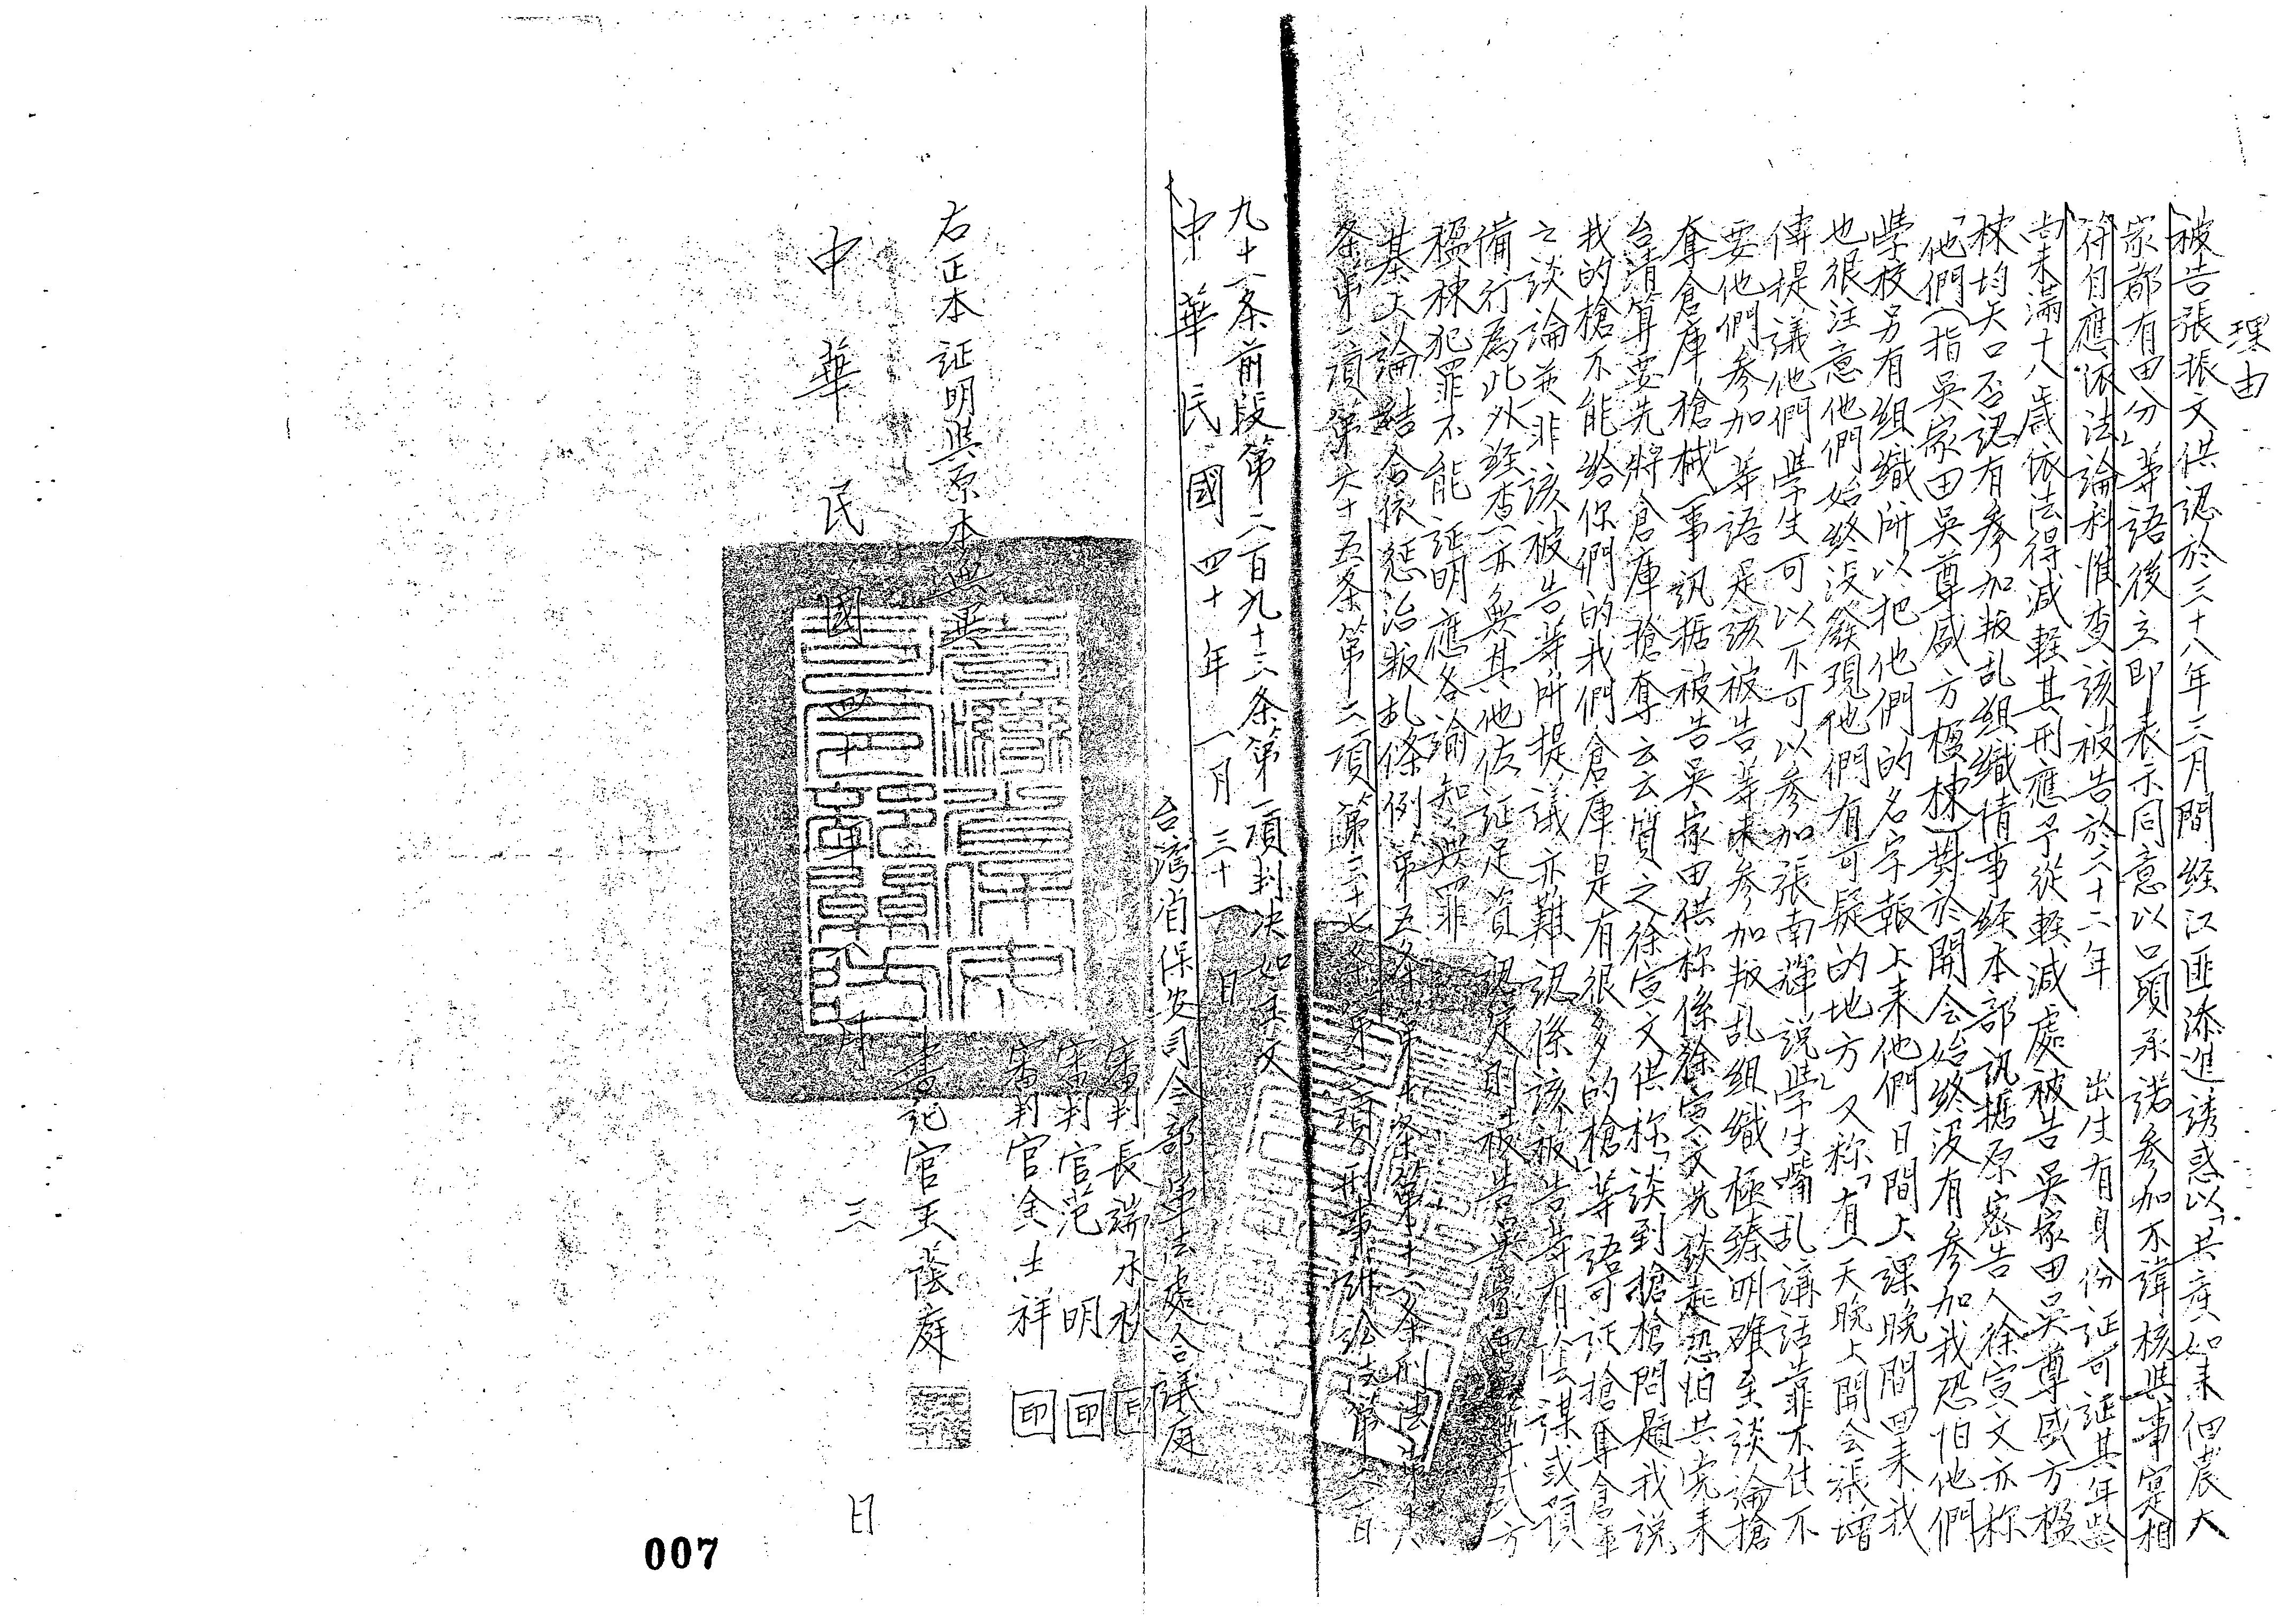 理由
被告張振文供認於三十八年三月間経江匪添進誘惑以「共產如来佃農大
家都有田分」等語後立即表示同意以口頭承諾參加不諱核與事寔相
符自應依法論科惟查該被告於二十二年 出生有身份証可証其年齡
尚未滿十八歲依法得減輕其刑應予從輕減處被告吳家田吳尊盛方楹
棟均矢口否認有參加叛乱組織情事経本部訊據原密告人徐宣文亦称
「他們(指吳家田吳尊盛方楹棟)對於開会始終沒有參加我恐怕他們
學校另有組織所以把他們的名字報上来他們日間上課晚間回来我
也很注意他們始終沒發現他們有可疑的地方」又称「有一天晚上開会張增
傳提議他們學生可以不可以參加張南輝説學生嘴乱講話靠不住不
要他們參加」等語是該被告等未參加叛乱組織極臻明確至談論搶
奪倉庫槍械一事訊據被告吳家田供称係徐宣文先談起恐怕共党来
台清算要先將倉庫搶奪云云質之徐宣文供称「談到搶槍問題我說
我的槍不能給你們的我們倉庫是有很多的槍」等語可証搶奪倉庫
之談論並非該被告等所提議亦難認係該被告等有陰謀或預
備行為此外経查亦無其他佐証足資認定則被告吳尊盛 方
楹棟犯罪不能証明應各諭知無罪
基上論結合依惩治叛乱條例第五条第 条第十二条刑法第十八
条第二項第六十五条第二項第三十七条第二項刑事訴訟法第二百
九十一条前段第二百九十三条第一項判决如主文
中華民國四十年一月三十一日
台灣省保安司令部軍法處合議庭
審判長端木棪 印
審判官范 明 印
審判官金士祥 印
右正本証明與原本無異
書記官王蔭庭
中華民國四十年 月 三 日
007